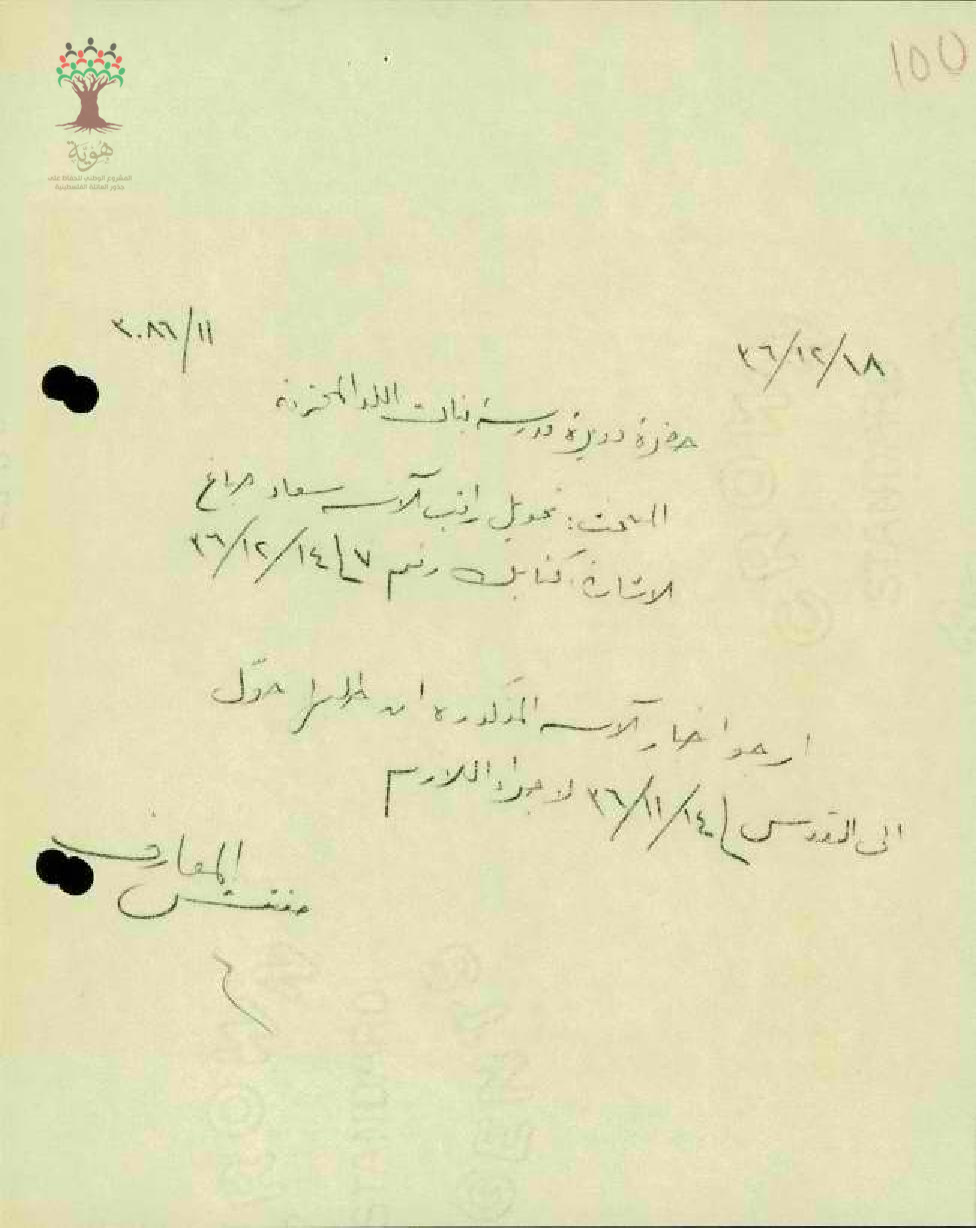 ١٥٥
هُوِيَّة
المشروع الوطني للحفاظ على
جذور العائلة الفلسطينية
٣٠٨٦/١١
٣٦/١٢/١٨
حضرة مديرة مدرسة بنات اللد المحترمة
البحث: تحويل راتب الآنسة سعاد صباغ
الاشارة: كتابك رقم ٧ / ٣٦/١٢/١٤
ارجو اخبار الآنسة المذكورة ان طلبها حوّل
الى القدس / ٣٦/١١/١٤ لاجراء اللازم
مفتش المعارف